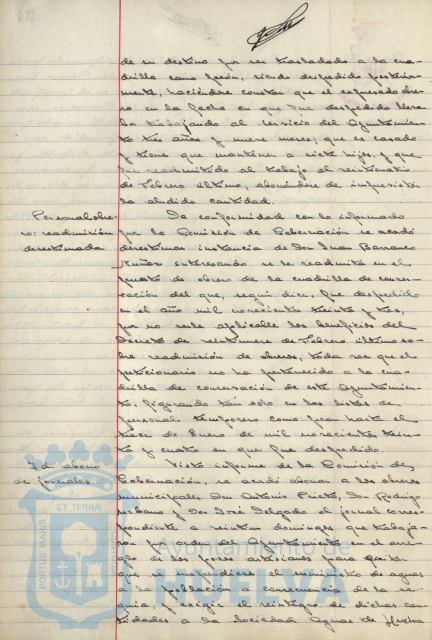 de su destino por ser trasladado a la cua-
drilla como peón, siendo despedido posterior-
mente, haciéndose constar que el expresado obre-
ro en la fecha en que fue despedido lleva-
ba trabajando al servicio del Ayuntamien-
to tres años y nueve meses; que es casado
y tiene que mantener a siete hijos, y que
fue readmitido al trabajo el veintinueve
de Febrero último, abonándose de imprevistos
la aludida cantidad.
Personal obre-
ro: readmisión
desestimada
De conformidad con lo informado
por la Comisión de Gobernación se acordó
desestimar instancia de Don Juan Barranco
Núñez interesando se le readmita en el
puesto de obrero de la cuadrilla de conser-
vación del que, según dice, fue despedido
en el año mil novecientos treinta y tres,
por no serle aplicable los beneficios del
Decreto de veintinueve de Febrero último so-
bre readmisión de obreros, toda vez que el
peticionario no ha pertenecido a la cua-
drilla de conservación de este Ayuntamien-
to, figurando tan solo en las listas de
personal temporero como peón hasta el
trece de Enero de mil novecientos trein-
ta y cuatro en que fue despedido.
Id. abono
de jornales.
Visto informe de la Comisión de
Gobernación, se acordó abonar a los obreros
municipales Don Antonio Prieto, Don Rodrigo
Urbano y Don José Delgado el jornal corres-
pondiente a veintiun domingos que trabaja-
ron por orden del Ayuntamiento en el arre-
glo de los pozos artesianos para evitar
que se suspendiere el suministro de aguas
a la población a consecuencia de la se-
quia, y exigir el reintegro de dichas can-
tidades a la Sociedad Aguas de Huelva
PORTUS MARIS ET TERRAE
Ayuntamiento de
HUELVA